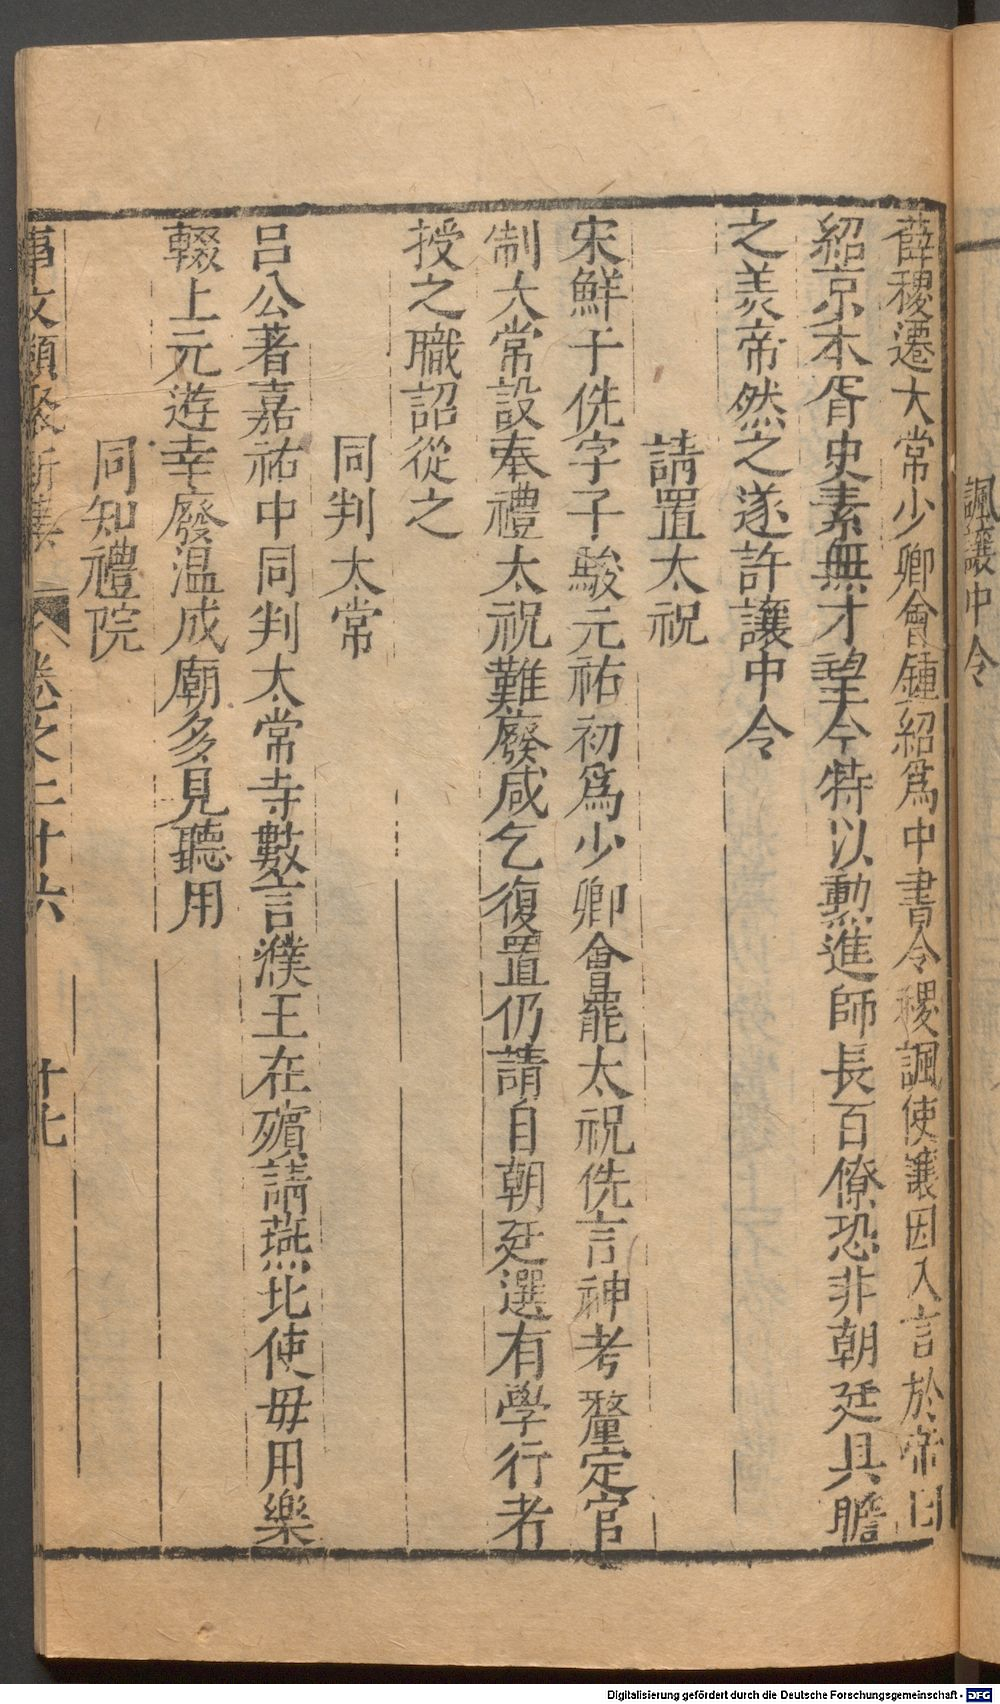 諷讓中令
薛稷遷大常少卿會鍾紹爲中書令稷諷使讓因入言於帝曰
紹京本胥史素無才望今特以勲進師長百僚恐非朝廷具瞻
之羙帝然之遂許讓中令
請置太祝
宋鮮于侁字子駿元祐初爲少卿會罷太祝侁言神考釐定官
制大常設奉禮太祝難廢咸乞復置仍請自朝廷選有學行者
授之職詔從之
同判太常
呂公著嘉祐中同判太常寺數言濮王在殯請燕北使毋用樂
輟上元遊幸廢温成廟多見聽用
同知禮院
事文類聚新集 卷之二十六 十七
Digitalisierung gefördert durch die Deutsche Forschungsgemeinschaft - DFG